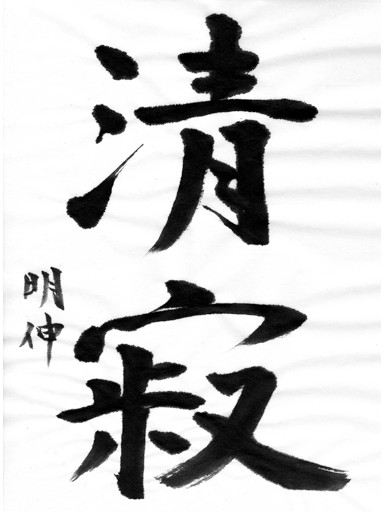 清寂
明伸